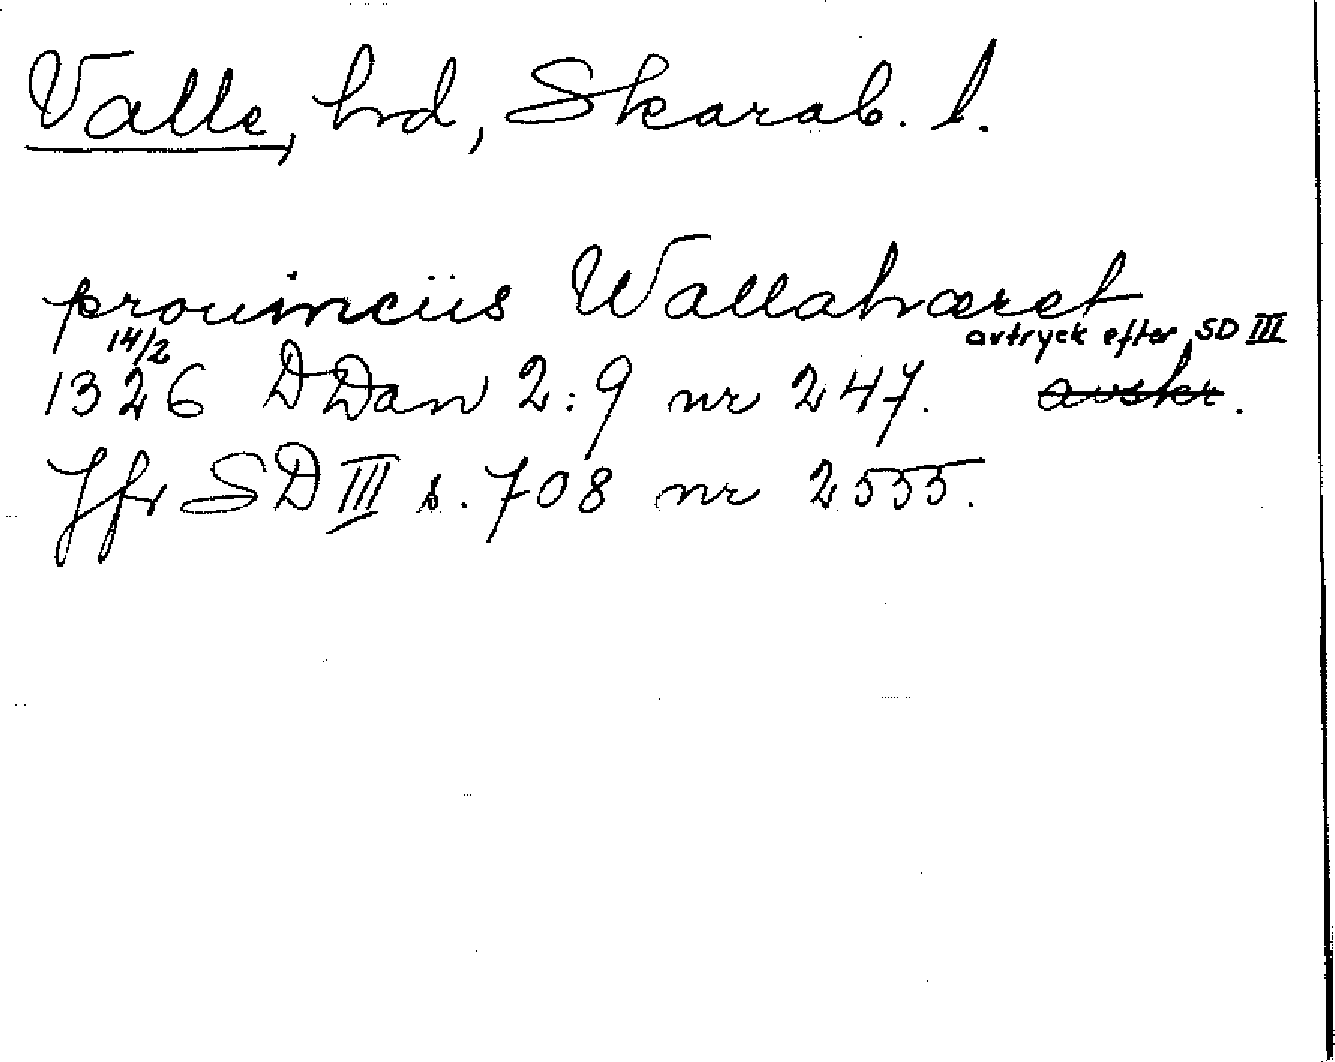 Valle, hd, Skarab. l.
prouinciis Wallahæret
14/2 avtryck efter SD III
1326 DDan 2:9 nr 247. avskr.
Jfr SD III s. 708 nr 2555.